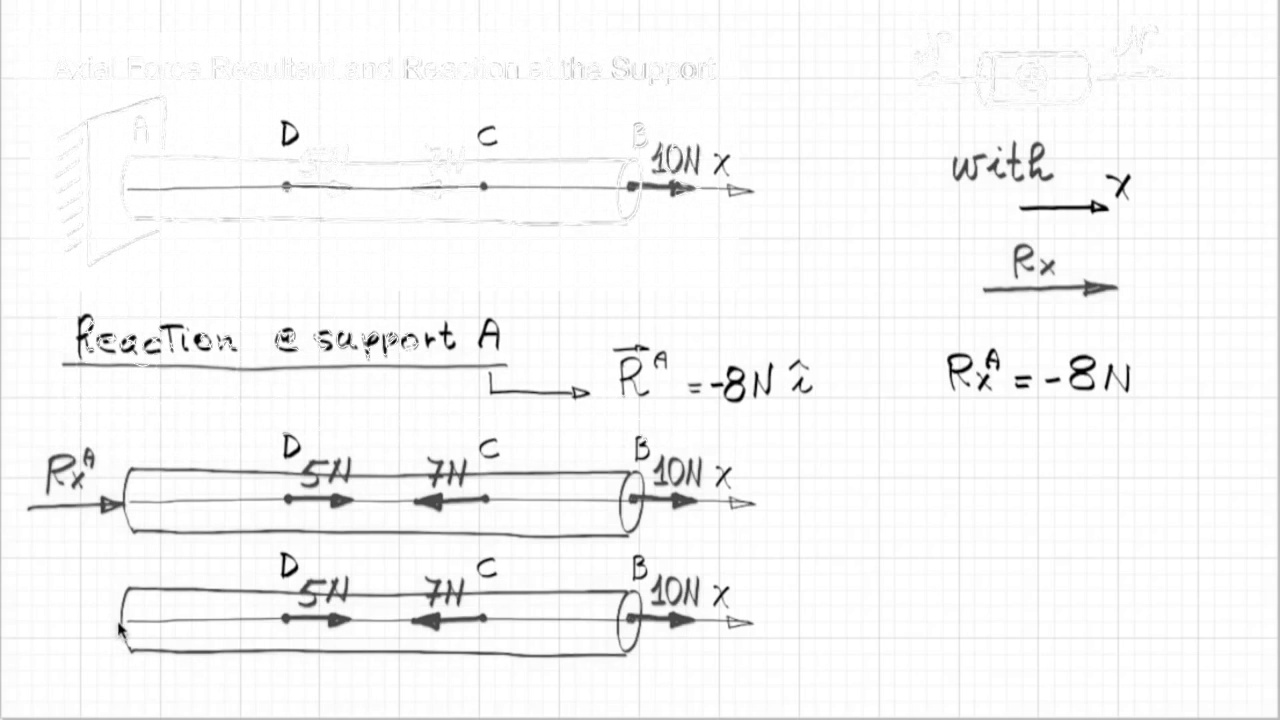 axial Force Resultant and Reaction at the Support
N N
A D C B
5N 7N 10N x
with x
Rx
Reaction @ support A
R^A = -8N î
Rx^A = -8N
D C B
Rx^A 5N 7N 10N x
D C B
5N 7N 10N x